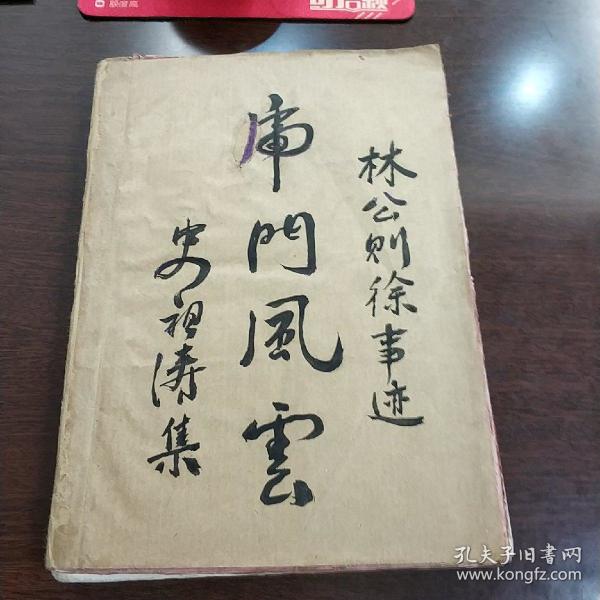 林公则徐事迹
虎門風雲
史祖涛集
孔夫子旧書网
www.kongfz.com